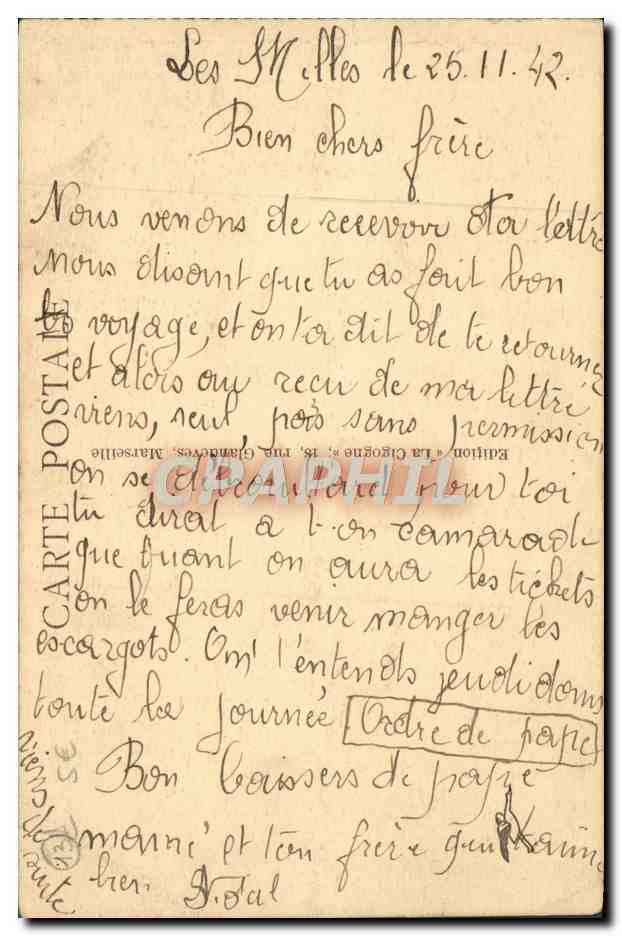 Les Milles le 25.11.42.
Bien chers frère
Nous venons de recevoir ta lettre
nous disant que tu as fait bon
voyage, et on ta dit de te retourner
et alors au recu de ma lettre
viens, seul, pas sans permission
on se pour toi
tu dirat a t-on camarade
que quant on aura les tickets
on le feras venir manger les
escargots. On t'entends jeudi dans
toute la journée Ordre de pape
Bon baissers de pape
mamé et ton frère qui t'aime
bien
viens de suite
CARTE POSTALE
Edition « La Cigogne », 18, rue Glandeves, Marseille
CPAPHIL
35